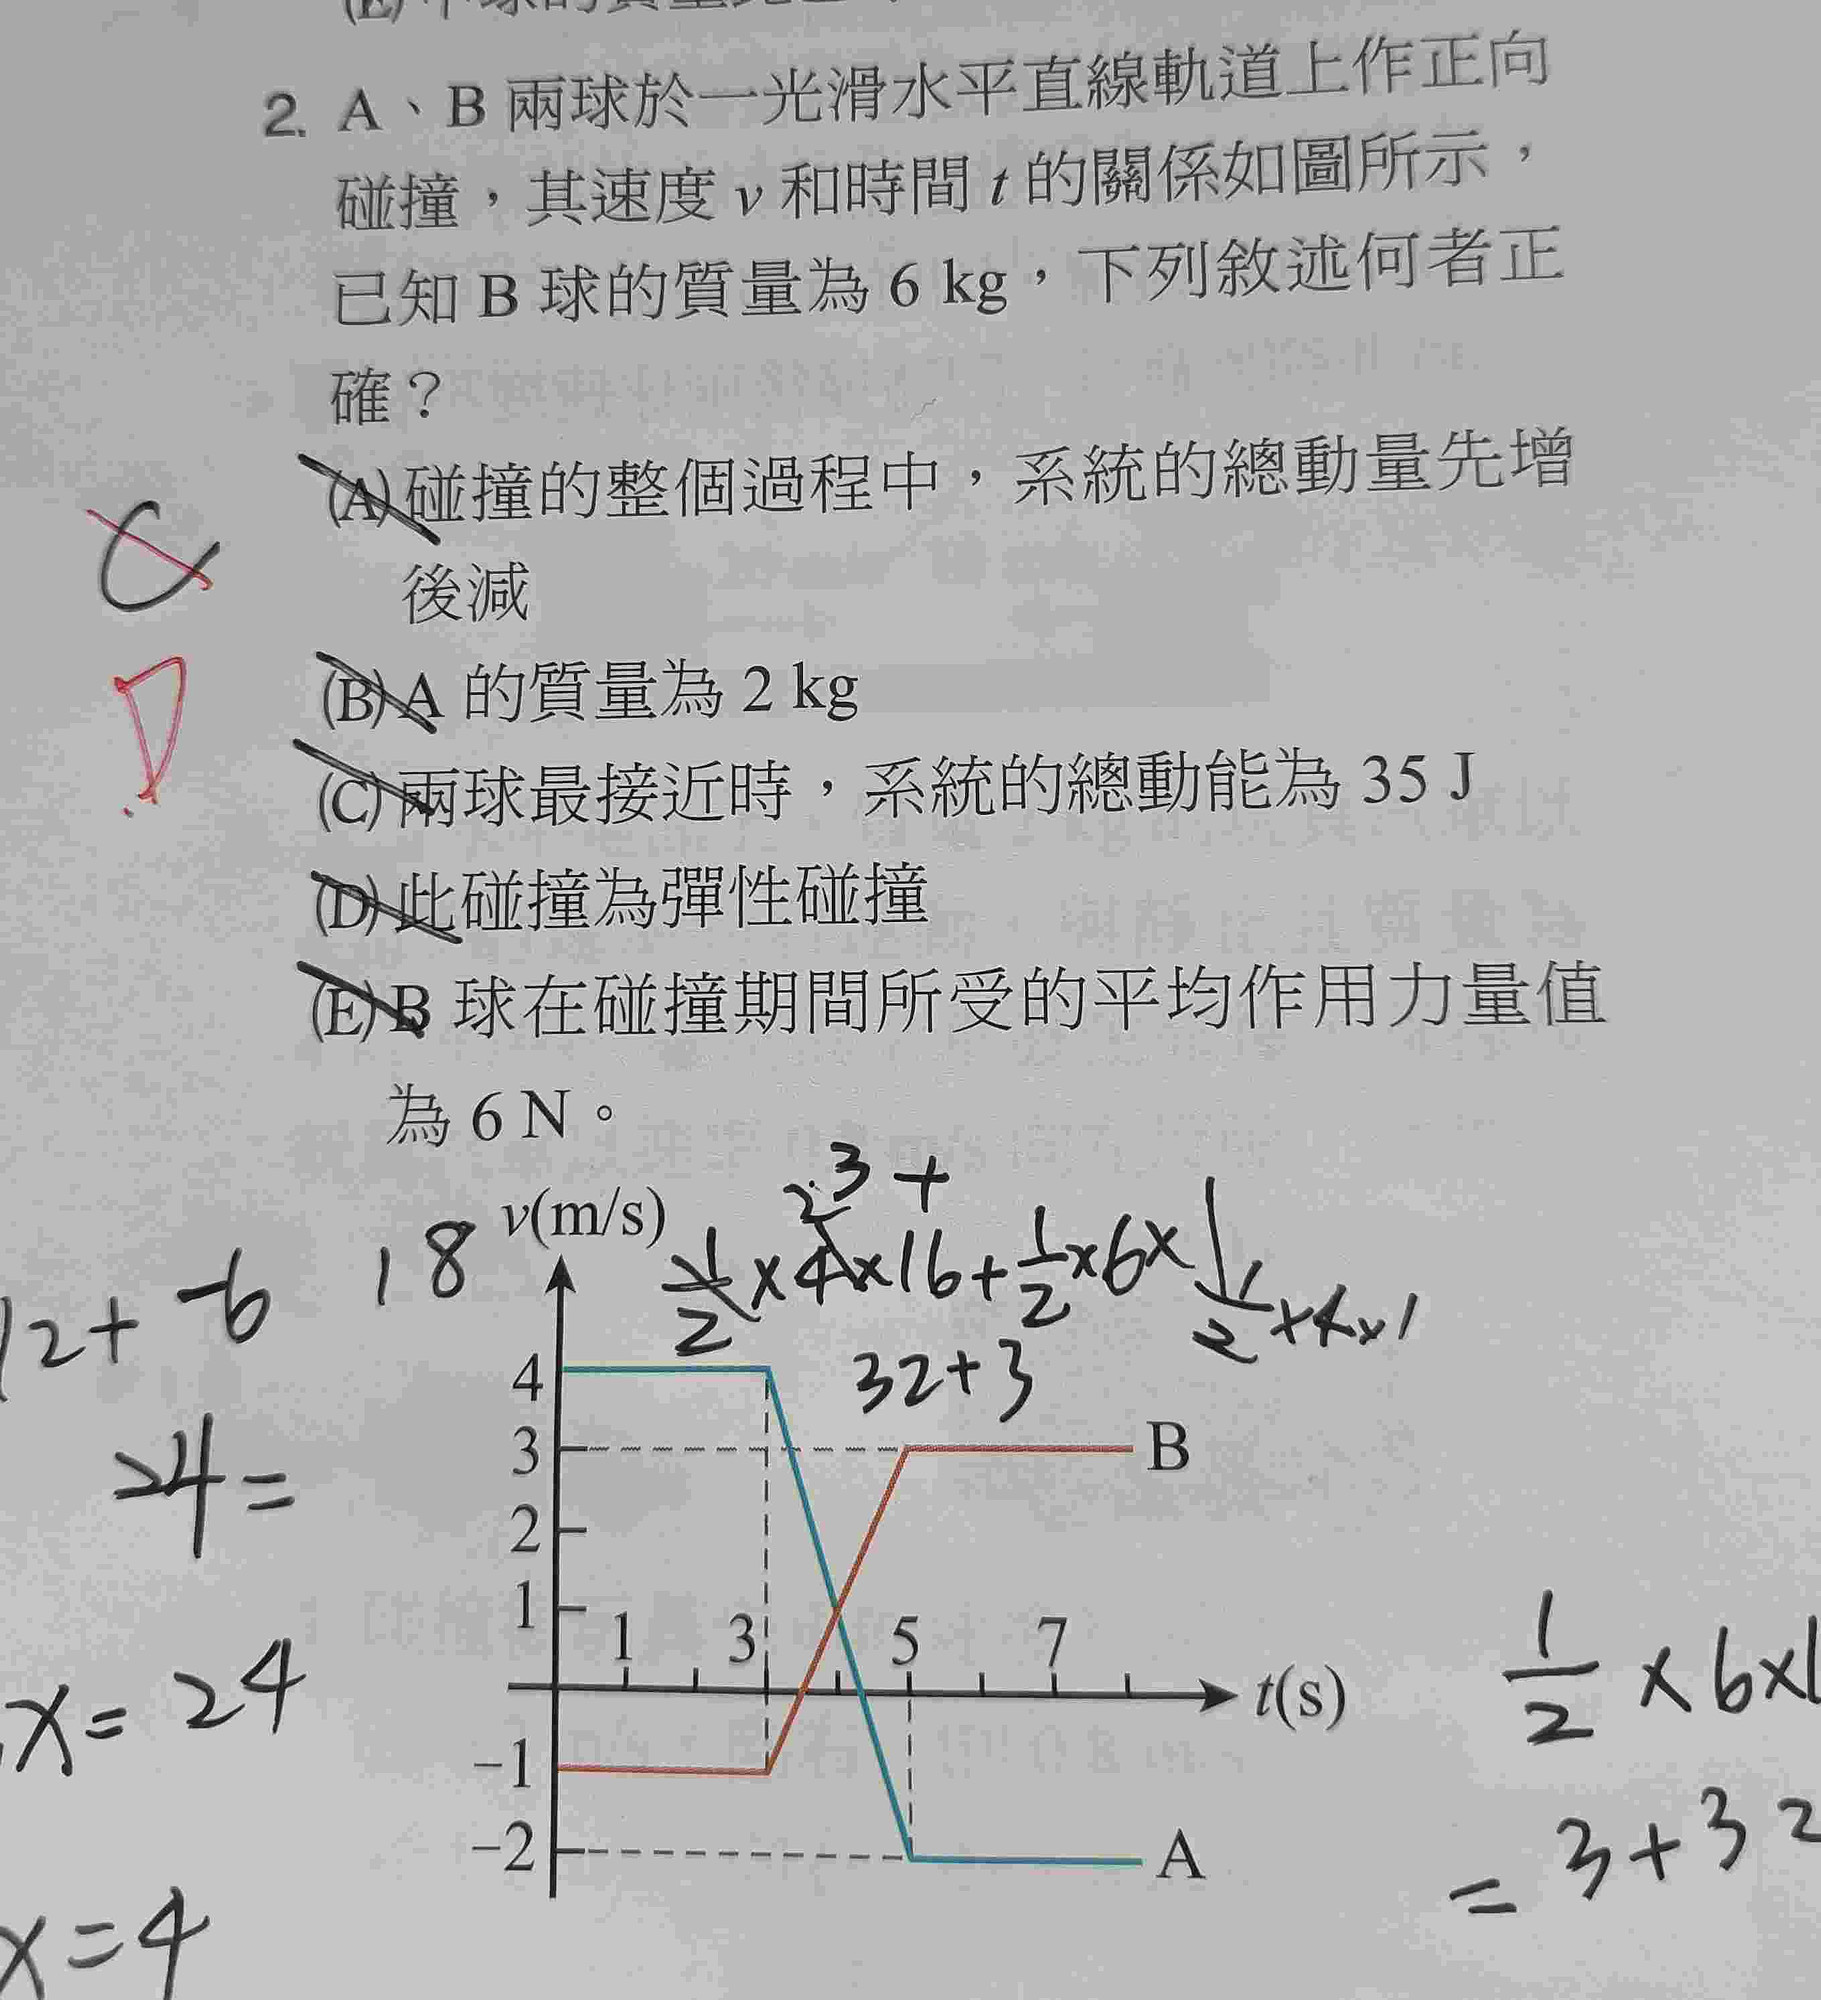 2. A、B 兩球於一光滑水平直線軌道上作正向
碰撞，其速度 v 和時間 t 的關係如圖所示，
已知 B 球的質量為 6 kg，下列敘述何者正
確？
(A)碰撞的整個過程中，系統的總動量先增
後減
(B)A 的質量為 2 kg
(C)兩球最接近時，系統的總動能為 35 J
(D)此碰撞為彈性碰撞
(E)B 球在碰撞期間所受的平均作用力量值
為 6 N。
C
D
12+ -6
18
24=
x=24
x=4
v(m/s)
3+
1/2 ×4×16+ 1/2 ×6×1
1/2 ×4×1
32+3
4
3
2
1
-1
-2
1
3
5
7
t(s)
B
A
1/2 ×6×1
= 3+32